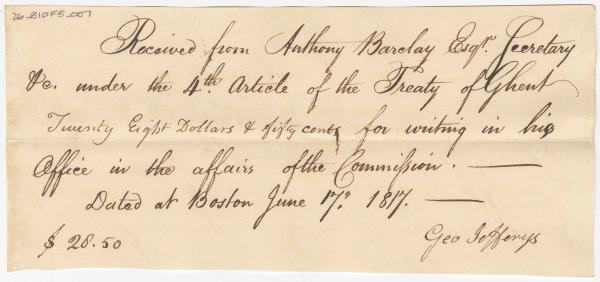 26_B10F5_007
Received from Anthony Barclay Esqr. Secretary
&c. under the 4th. Article of the Treaty of Ghent
Twenty Eight Dollars & fifty cents for writing in his
Office in the affairs of the Commission. —
Dated at Boston June 17th. 1817. —
$ 28.50 Geo Jofferys